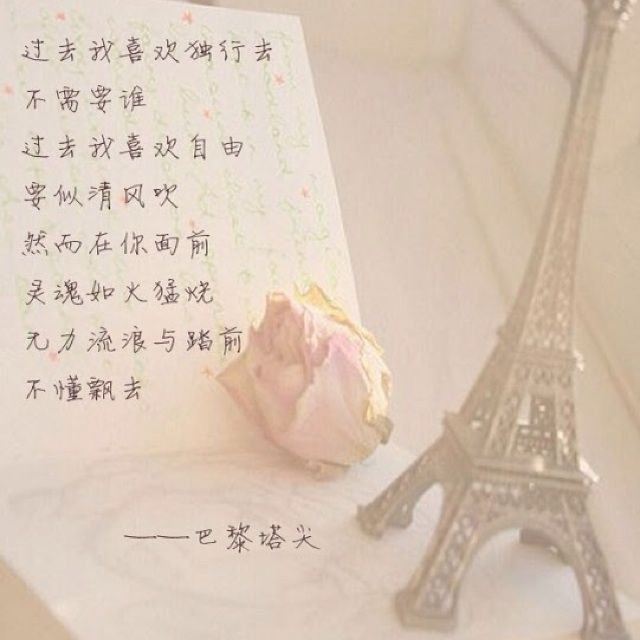 过去我喜欢独行去
不需要谁
过去我喜欢自由
要似清风吹
然而在你面前
灵魂如火猛烧
无力流浪与踏前
不懂飘去
——巴黎塔尖